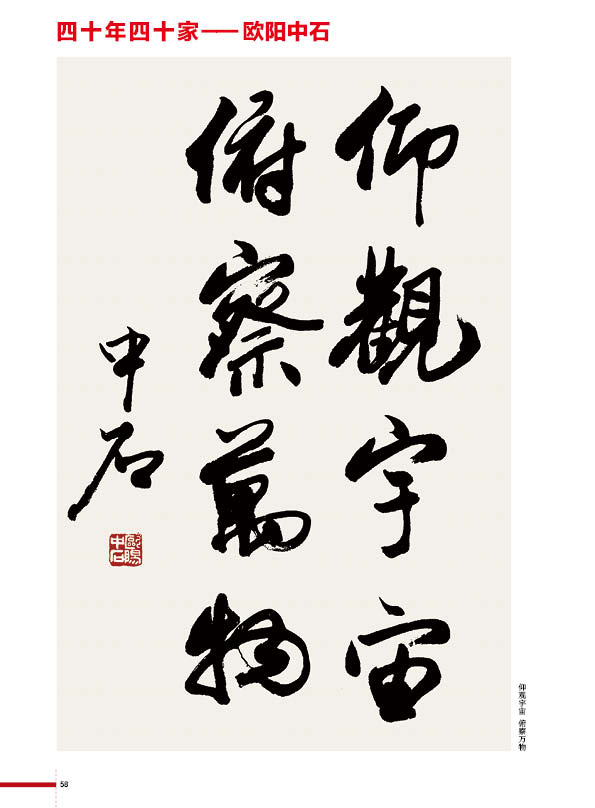 四十年四十家——欧阳中石
仰觀宇宙
俯察萬物
中石
歐陽中石
仰观宇宙 俯察万物
58